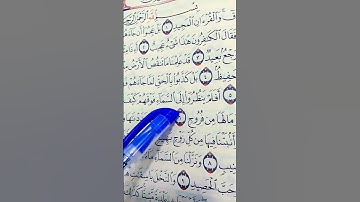 قٓ وَالْقُرْءَانِ الْمَجِيدِ ١ بَلْ عَجِبُوٓا۟ أَن جَآءَ
فَقَالَ الْكَٰفِرُونَ هَٰذَا شَىْءٌ عَجِيبٌ ٢
رَجْعٌۢ بَعِيدٌ ٣ قَدْ عَلِمْنَا مَا تَنقُصُ الْأَرْضُ
حَفِيظٌۢ ٤ بَلْ كَذَّبُوا۟ بِالْحَقِّ لَمَّا جَآءَهُمْ
٥ أَفَلَمْ يَنظُرُوٓا۟ إِلَى السَّمَآءِ فَوْقَهُمْ كَيْفَ
مَا لَهَا مِن فُرُوجٍ ٦
أَنۢبَتْنَا فِيهَا مِن كُلِّ زَوْجٍۭ بَهِيجٍ
٨ وَنَزَّلْنَا مِنَ السَّمَآءِ مَآءً
حَبَّ الْحَصِيدِ ٩ وَالنَّخْلَ بَاسِقَٰتٍ